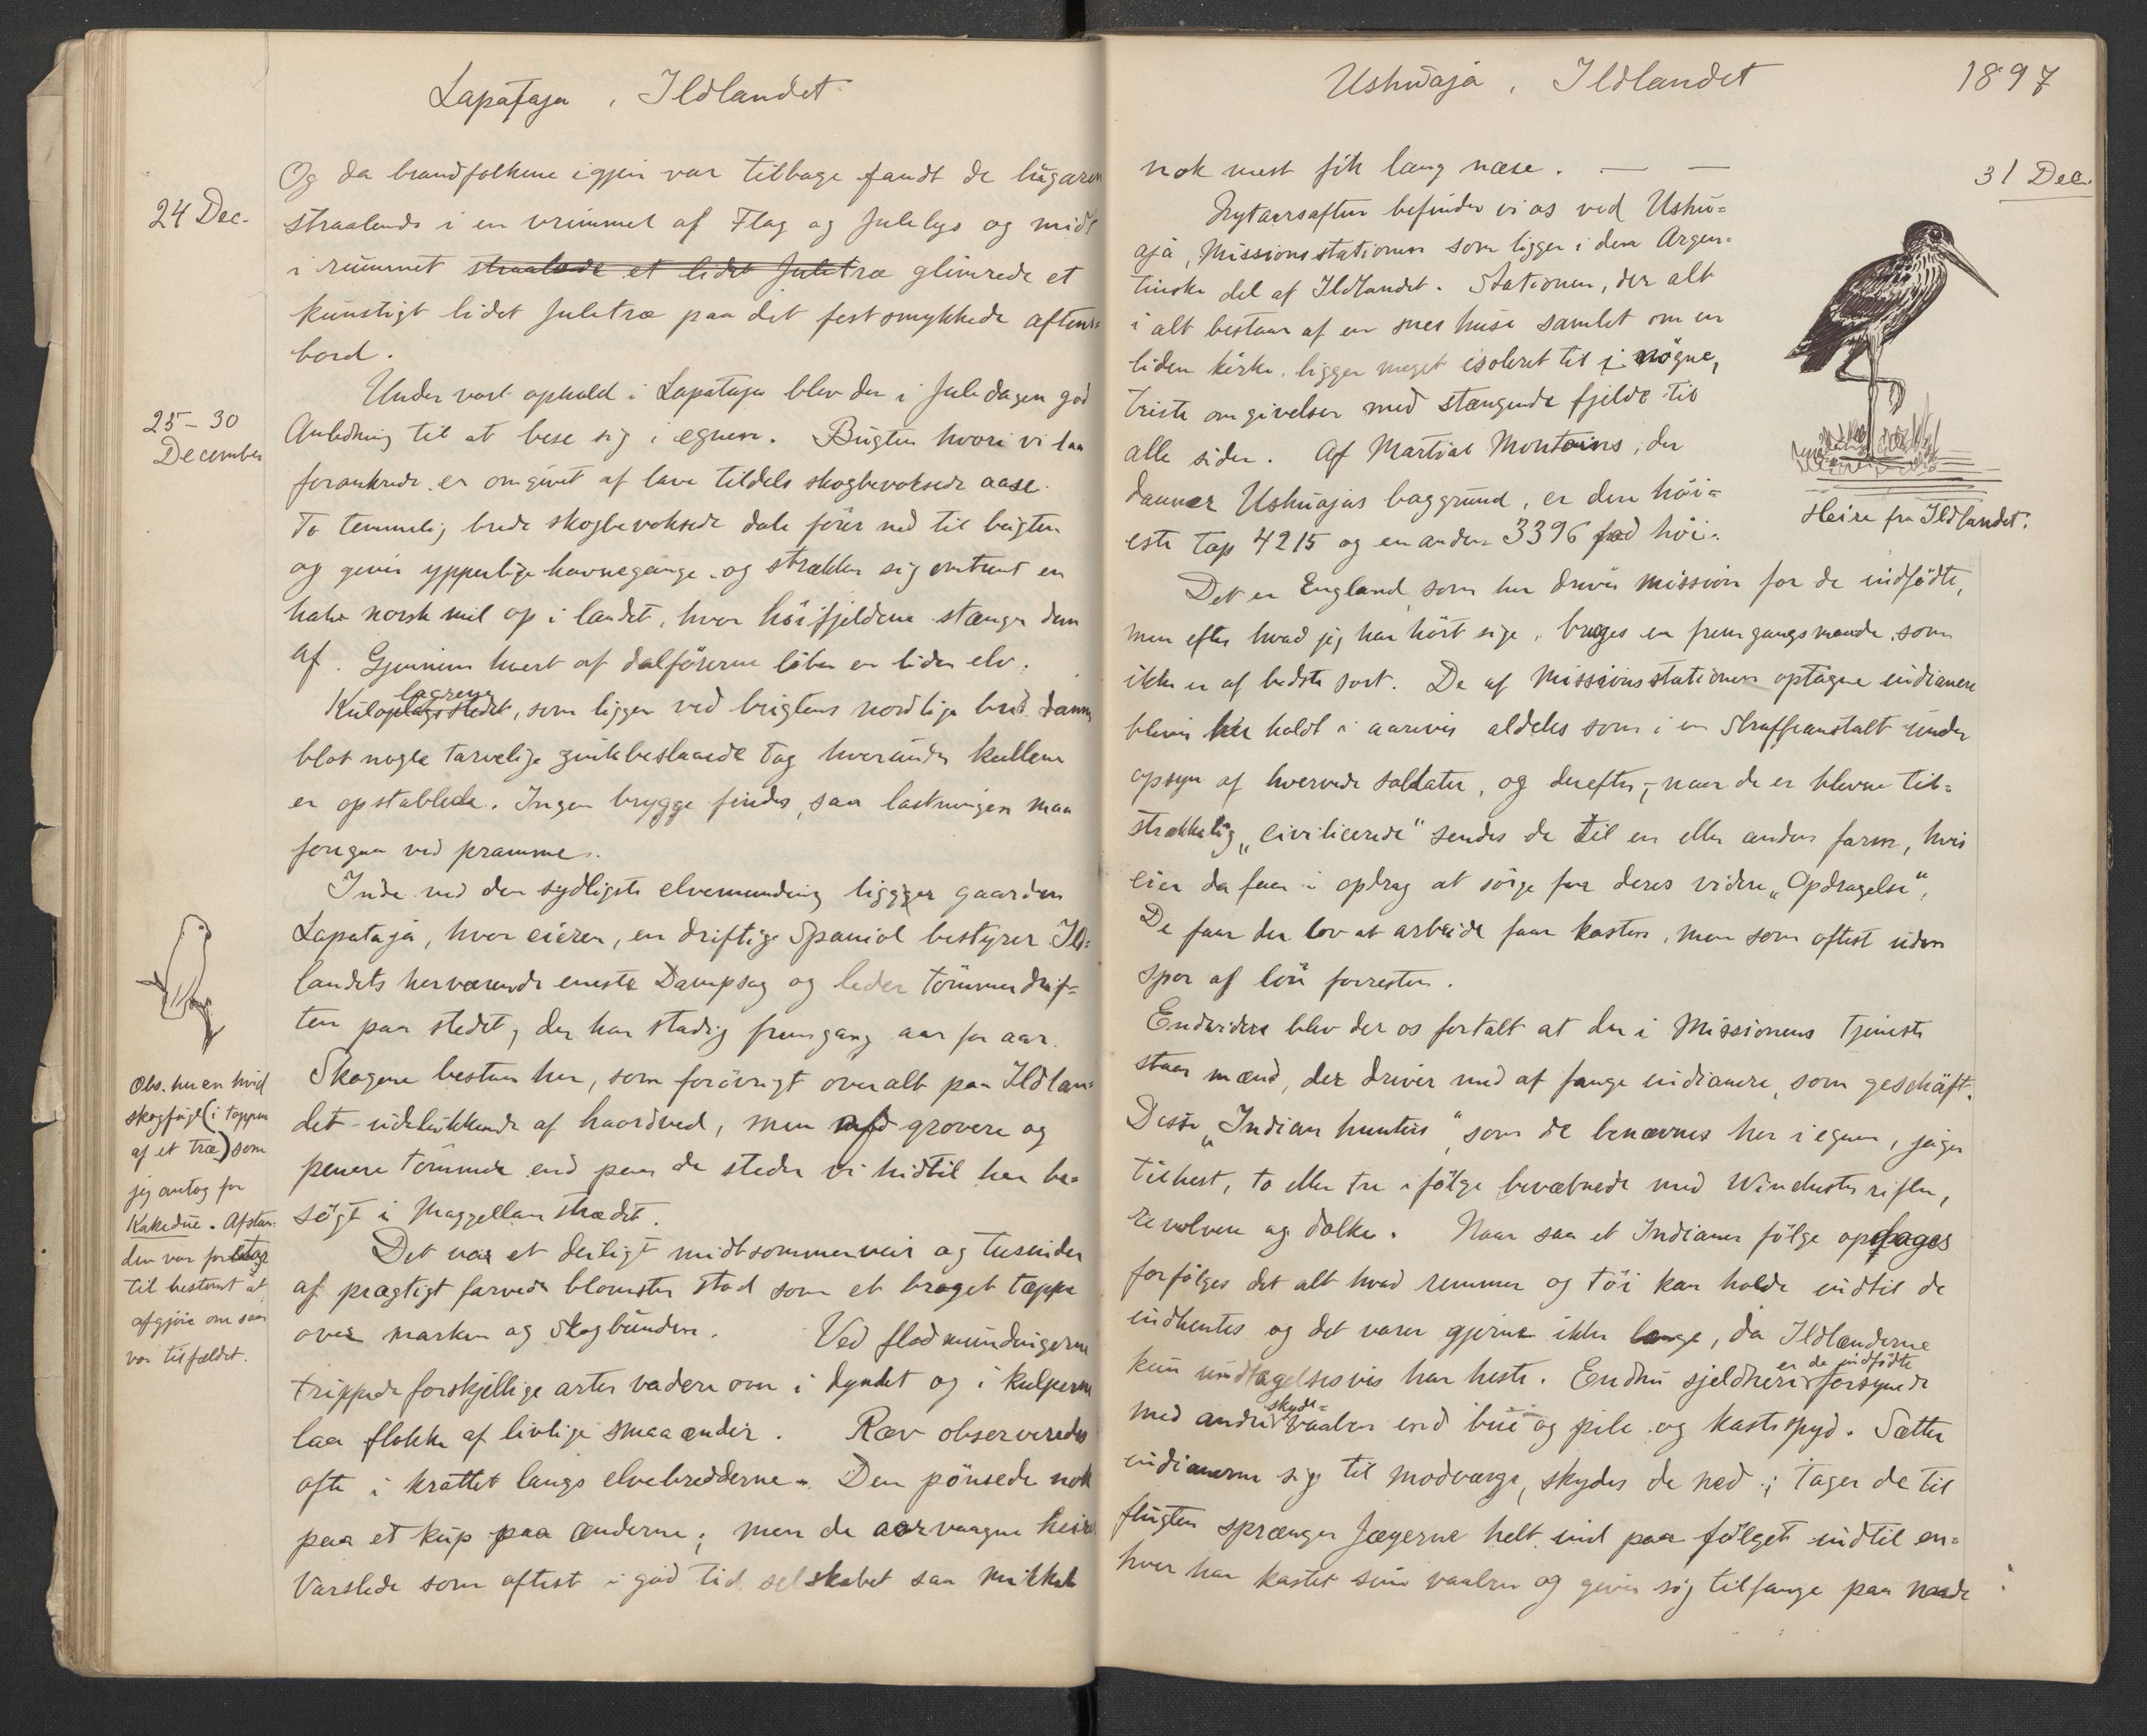 Lapataja, Ildlandet
24 Dec.
Og da brandfolkene igjen var tilbage fandt de lugaren
straalende i en vrimmel af Flag og Julelys og midt
i rummet straalede et lidet Juletræ glimrede et
kunstigt lidet Juletræ paa det festsmykkede aftens=
bord.
25-30
December
Under vort ophold i Lapataja blev der i Juledagen god
Anledning til at bese sig i egnen. Bugten hvori vi laa
forankrede er omgivet af lave tildels skogbevoksede aase.
To temmelig brede skogbevoksede dale fører ned til bugten
og giver ypperlige havnegange og strækker sig omtrent en
halv norsk mil op i landet, hvor høifjeldene stænger dem
af. Gjennem hvert af dalførerne løber en liden elv.
lagrene
Kuloplagsstedet, som ligger ved bugtens nordlige bred danner
blot nogle tarvelige zinkbeslaaede tag hverunder kullene
er opstablede. Ingen brygge findes, saa lastningen maa
foregaa ved pramme.
Inde ved den sydligste elvemunding ligger gaarden
Lapataja, hvor eieren, en driftige Spaniol bestyrer Ild=
landets herværende eneste Dampsag og leder tømmerdrif=
ten paa stedet, der har stadig fremgang aar for aar.
Skogene bestaar her, som forøvrigt overalt paa Ildlan=
det udelukkende af haardved, men af grovere og
penere tømmer end paa de steder vi hidtil har be=
søgt i Maggellanstrædet.
Obs. her en hvid
skogfugl (i toppen
af et træ) som
jeg antog for
Kakedue. Afstan=
den var for lang
til bestemt at
afgjøre om saa
var tilfældet.
Det var et deiligt midtsommerveir og tusinder
af prægtigt farvede blomster stod som et broget tæppe
over marken og skogbunden. Ved flodmundingerne
trippede forskjellige arter vadere om i dyndet og i kulperne
laa flokke af livlige smaaænder. Ræv observeredes
ofte i krattet langs elvebredderne. Den pønsede nok
paa et kup paa ænderne; men de aarvaagne heirer
varslede som oftest i god tid selskabet saa mikkel
Ushuaja, Ildlandet
1897
nok mest fik lang næse. — —
31 Dec.
Nytaarsaften befinder vi os ved Ushu=
aja, Missionsstationen som ligger i den Argen=
tinske del af Ildlandet. Stationen, der alt
i alt bestaar af en snes huse samlet om en
liden kirke, ligger meget isoleret til i nøgne,
triste omgivelser med stængende fjelde til
alle sider. Af Martial Montains, der
danner Ushuajas baggrund, er den høi=
este top 4215 og en anden 3396 fod høi.
Heire fra Ildlandet.
Det er England, som her driver mission for de indfødte,
men efter hvad jeg har hørt sige, bruges en fremgangsmaade som
ikke er af bedste sort. De af Missionsstationen optagne indianere
bliver her holdt i aarevis aldeles som i en Straffeanstalt under
opsyn af hvervede soldater, og derefter, naar de er blevne til=
strækkelig „civilicerede" sendes de til en eller anden farm, hvis
eier da faar i opdrag at sørge for deres videre „Opdragelse",
De faar der lov at arbeide faar kosten, men som oftest uden
spor af løn forresten.
Endvidere blev der os fortalt at der i Missionens tjeneste
staar mænd, der driver med af fange indianere, som geschäft.
Disse „Indian hunters" som de benævnes her i egnen, jager
tilhest, to eller tre ifølge bevæbnede med Winchester rifler,
revolvere og dolke. Naar saa et Indianer følge opdages
forfølges det alt hvad remmer og tøi kan holde indtil de
indhentes og det varer gjerne ikke længe, da Ildlænderne
kun undtagelsesvis har heste. Endnu sjeldnere er de indfødte forsynede
med andre skyde= vaaben end bue og pile og kastespyd. Sætter
indianerne sig til modværge, skydes de ned; tager de til
flugten sprænger Jægerne helt ind paa følget indtil en=
hver har kastet sine vaaben og giver sig tilfange paa naade